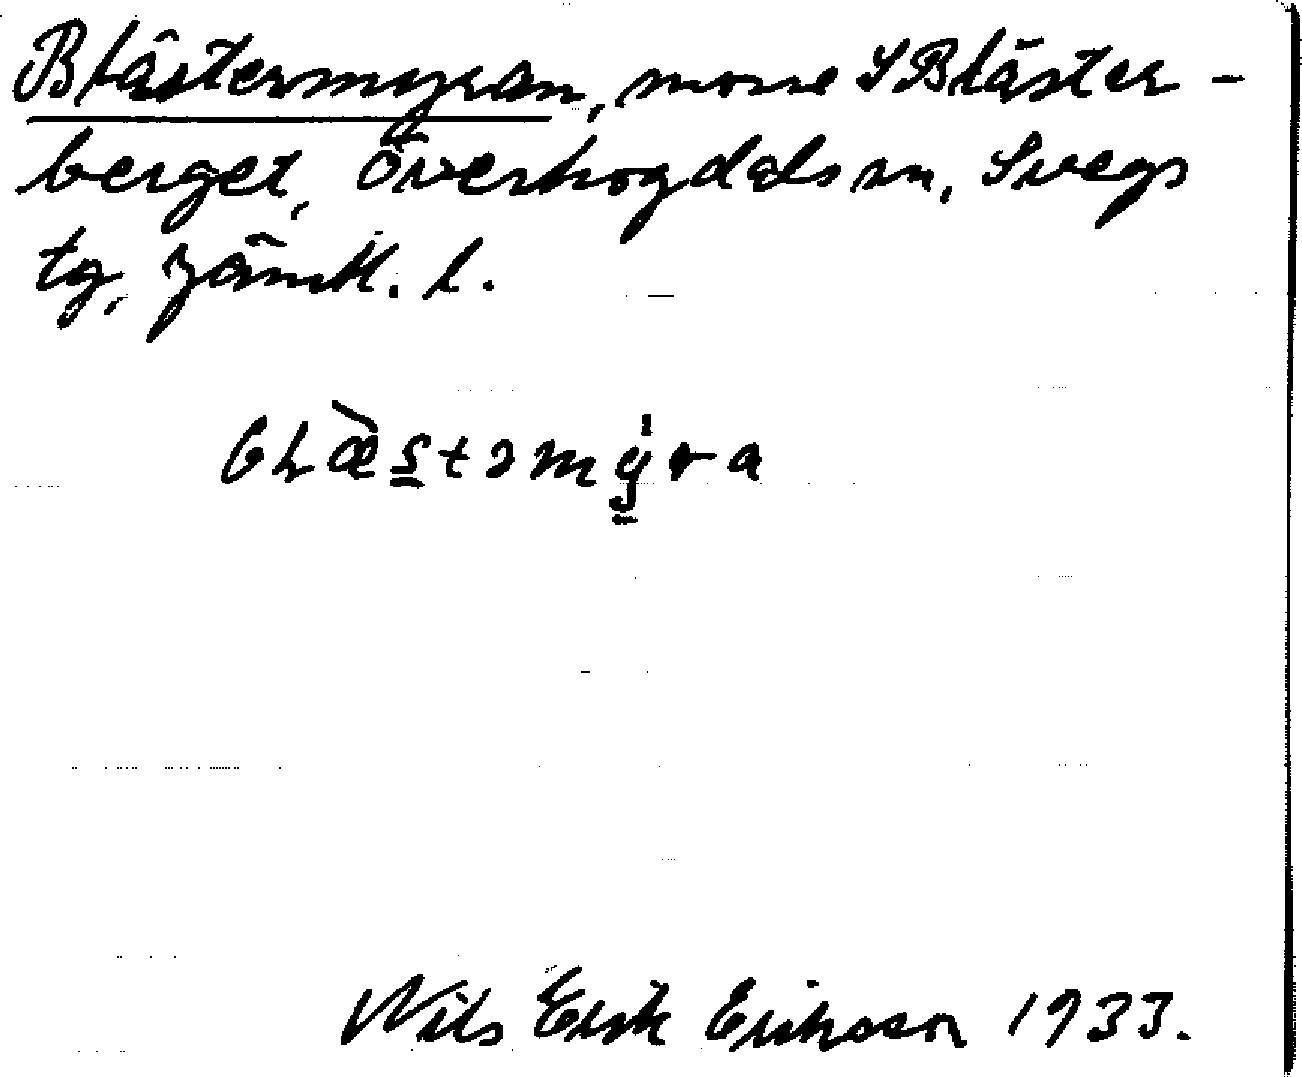 Blästermyran, mosse S Bläster-
berget, Överhogdals sn, Svegs
tg, Jämtl. l.
bLæ̀stəmy̠ra
Nils Erik Eriksson 1933.